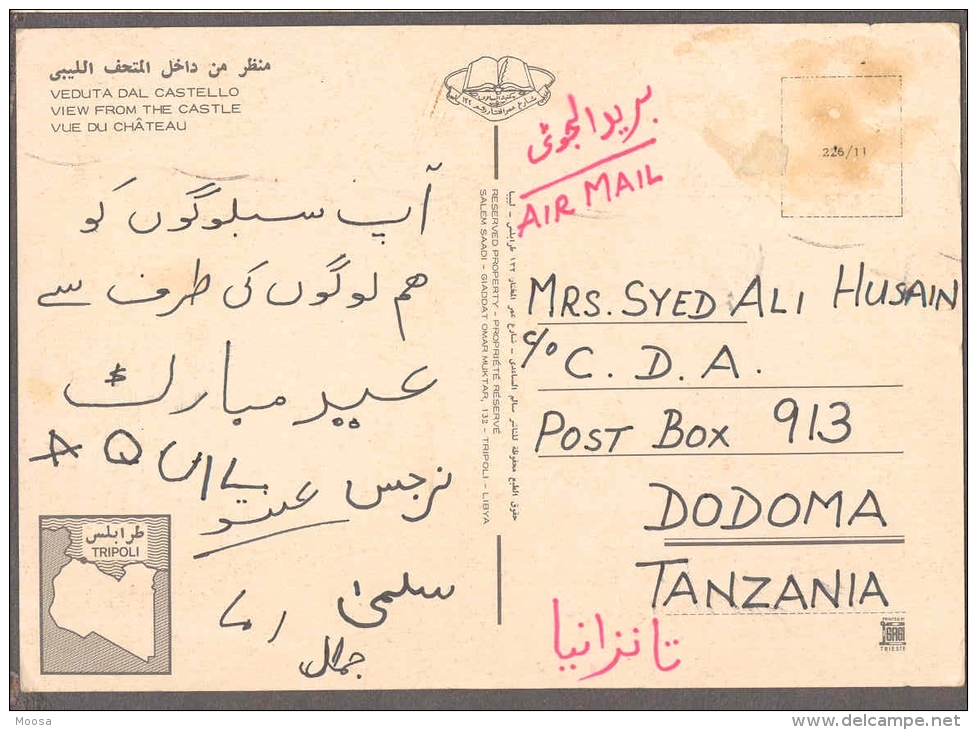 منظر من داخل المتحف الليبى
VEDUTA DAL CASTELLO
VIEW FROM THE CASTLE
VUE DU CHÂTEAU
آپ سبلوگوں کو
ھم لوگوں کی طرف سے
عید مبارک
نرجس
A Q
سلمیٰ
جمال
طرابلس
TRIPOLI
حقوق الطبع محفوظة للناشر سالم الساعدى - شارع عمر المختار ١٣٢ طرابلس - ليبيا
RESERVED PROPERTY - PROPRIÉTÉ RÉSERVÉ
SALEM SAADI - GIADDAT OMAR MUKTAR, 132 - TRIPOLI - LIBYA
بريد الجوئی
AIR MAIL
226/11
MRS. SYED ALI HUSAIN
c/o C. D. A.
POST BOX 913
DODOMA
TANZANIA
تانزانيا
PRINTED BY
TRIESTE
Moosa
www.delcampe.net